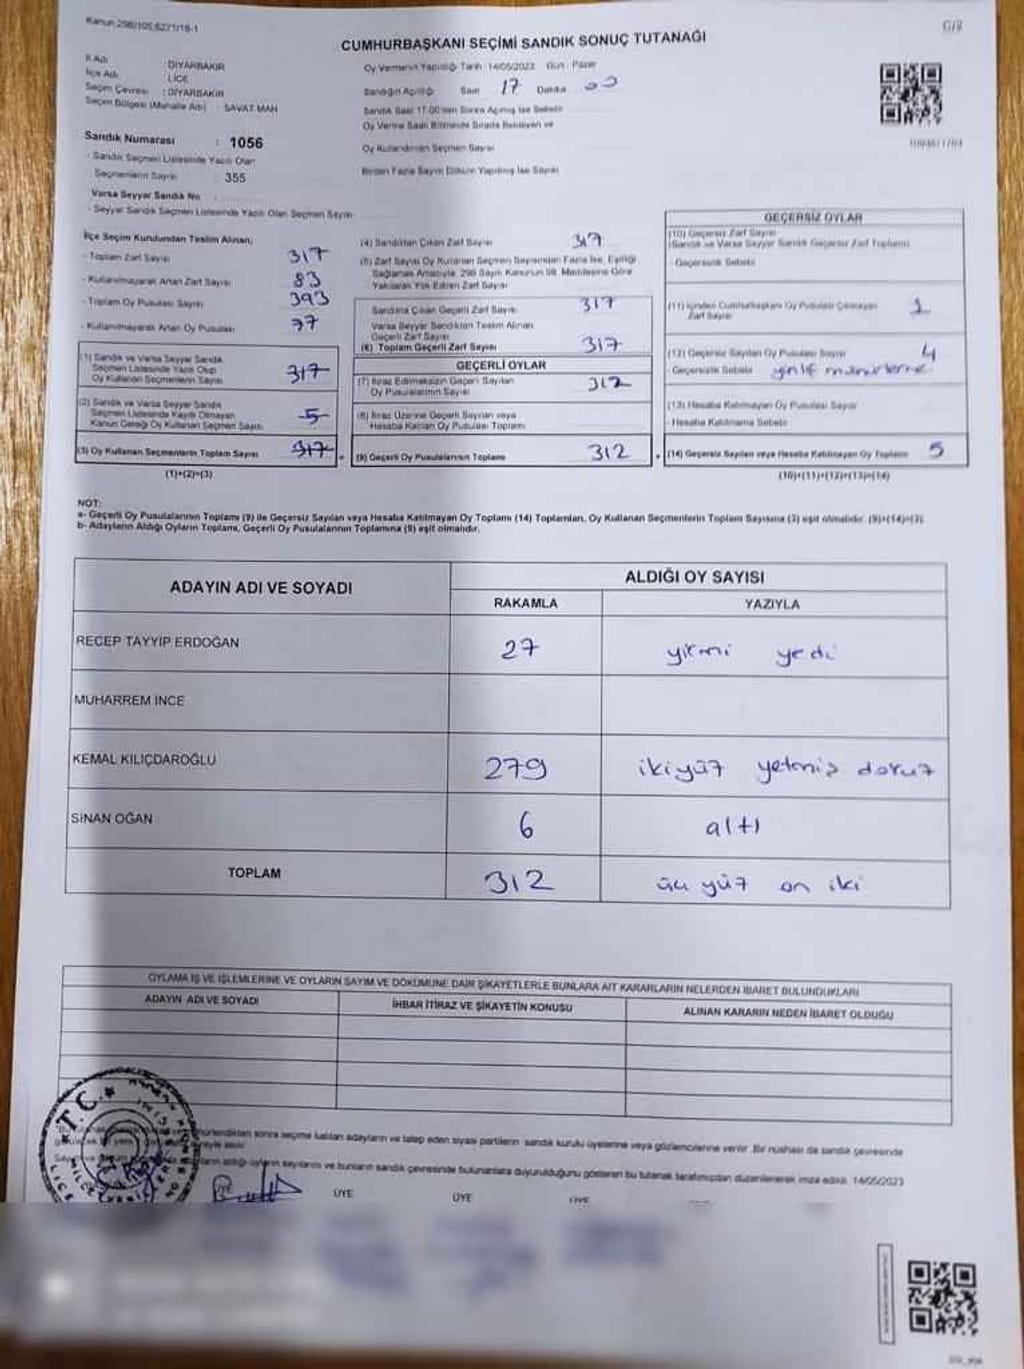 Kanun:298/105,6271/18-1
CUMHURBAŞKANI SEÇİMİ SANDIK SONUÇ TUTANAĞI
İl Adı : DİYARBAKIR
İlçe Adı : LİCE
Seçim Çevresi : DİYARBAKIR
Seçim Bölgesi (Mahalle Adı) : SAVAT MAH
Sandık Numarası : 1056
- Sandık Seçmen Listesinde Yazılı Olan
Seçmenlerin Sayısı : 355
Varsa Seyyar Sandık No
- Seyyar Sandık Seçmen Listesinde Yazılı Olan Seçmen Sayısı
Oy Vermenin Yapıldığı Tarih :14/05/2023 Gün : Pazar
Sandığın Açıldığı Saat 17 Dakika 00
Sandık Saat 17:00'dan Sonra Açılmış İse Sebebi
Oy Verme Saati Bitiminde Sırada Bekleyen ve
Oy Kullandırılan Seçmen Sayısı
Birden Fazla Sayım Döküm Yapılmış İse Sayısı
İlçe Seçim Kurulundan Teslim Alınan;
- Toplam Zarf Sayısı 317
- Kullanılmayarak Artan Zarf Sayısı 83
- Toplam Oy Pusulası Sayısı 393
- Kullanılmayarak Artan Oy Pusulası 77
(1) Sandık ve Varsa Seyyar Sandık
Seçmen Listesinde Yazılı Olup
Oy Kullanan Seçmenlerin Sayısı 317
(2) Sandık ve Varsa Seyyar Sandık
Seçmen Listesinde Kayıtlı Olmayan
Kanun Gereği Oy Kullanan Seçmen Sayısı 5
(3) Oy Kullanan Seçmenlerin Toplam Sayısı 317
(1)+(2)=(3)
(4) Sandıktan Çıkan Zarf Sayısı 317
(5) Zarf Sayısı Oy Kullanan Seçmen Sayısından Fazla İse, Eşitliği
Sağlamak Amacıyla, 298 Sayılı Kanunun 98. Maddesine Göre
Yakılarak Yok Edilen Zarf Sayısı
Sandıkta Çıkan Geçerli Zarf Sayısı 317
Varsa Seyyar Sandıktan Teslim Alınan
Geçerli Zarf Sayısı
(6) Toplam Geçerli Zarf Sayısı 317
GEÇERLİ OYLAR
(7) İtiraz Edilmeksizin Geçerli Sayılan
Oy Pusulalarının Sayısı 312
(8) İtiraz Üzerine Geçerli Sayılan veya
Hesaba Katılan Oy Pusulası Toplamı
(9) Geçerli Oy Pusulalarının Toplamı 312
GEÇERSİZ OYLAR
(10) Geçersiz Zarf Sayısı
(Sandık ve Varsa Seyyar Sandık Geçersiz Zarf Toplamı)
- Geçersizlik Sebebi
(11) İçinden Cumhurbaşkanı Oy Pusulası Çıkmayan
Zarf Sayısı 1
(12) Geçersiz Sayılan Oy Pusulası Sayısı 4
- Geçersizlik Sebebi
(13) Hesaba Katılmayan Oy Pusulası Sayısı
- Hesaba Katılmama Sebebi
(14) Geçersiz Sayılan veya Hesaba Katılmayan Oy Toplamı 5
(10)+(11)+(12)+(13)=(14)
NOT:
a- Geçerli Oy Pusulalarının Toplamı (9) ile Geçersiz Sayılan veya Hesaba Katılmayan Oy Toplamı (14) Toplamları, Oy Kullanan Seçmenlerin Toplam Sayısına (3) eşit olmalıdır. (9)+(14)=(3)
b- Adayların Aldığı Oyların Toplamı, Geçerli Oy Pusulalarının Toplamına (9) eşit olmalıdır.
ADAYIN ADI VE SOYADI
ALDIĞI OY SAYISI
RAKAMLA YAZIYLA
RECEP TAYYİP ERDOĞAN 27 yirmi yedi
MUHARREM İNCE
KEMAL KILIÇDAROĞLU 279 ikiyüz yetmiş dokuz
SİNAN OĞAN 6 altı
TOPLAM 312 üç yüz on iki
OYLAMA İŞ VE İŞLEMLERİNE VE OYLARIN SAYIM VE DÖKÜMÜNE DAİR ŞİKAYETLERLE BUNLARA AİT KARARLARIN NELERDEN İBARET BULUNDUKLARI
ADAYIN ADI VE SOYADI İHBAR İTİRAZ VE ŞİKAYETİN KONUSU ALINAN KARARIN NEDEN İBARET OLDUĞU
sonra seçime katılan adayların ve talep eden siyasi partilerin sandık kurulu üyelerine veya gözlemcilerine verilir. Bir nüshası da sandık çevresinde
aldığı oyların sayılarını ve bunların sandık çevresinde bulunanlara duyurulduğunu gösteren bu tutanak tarafımızdan düzenlenerek imza edildi. 14/05/2023
T.C.
LİCE
ÜYE ÜYE ÜYE